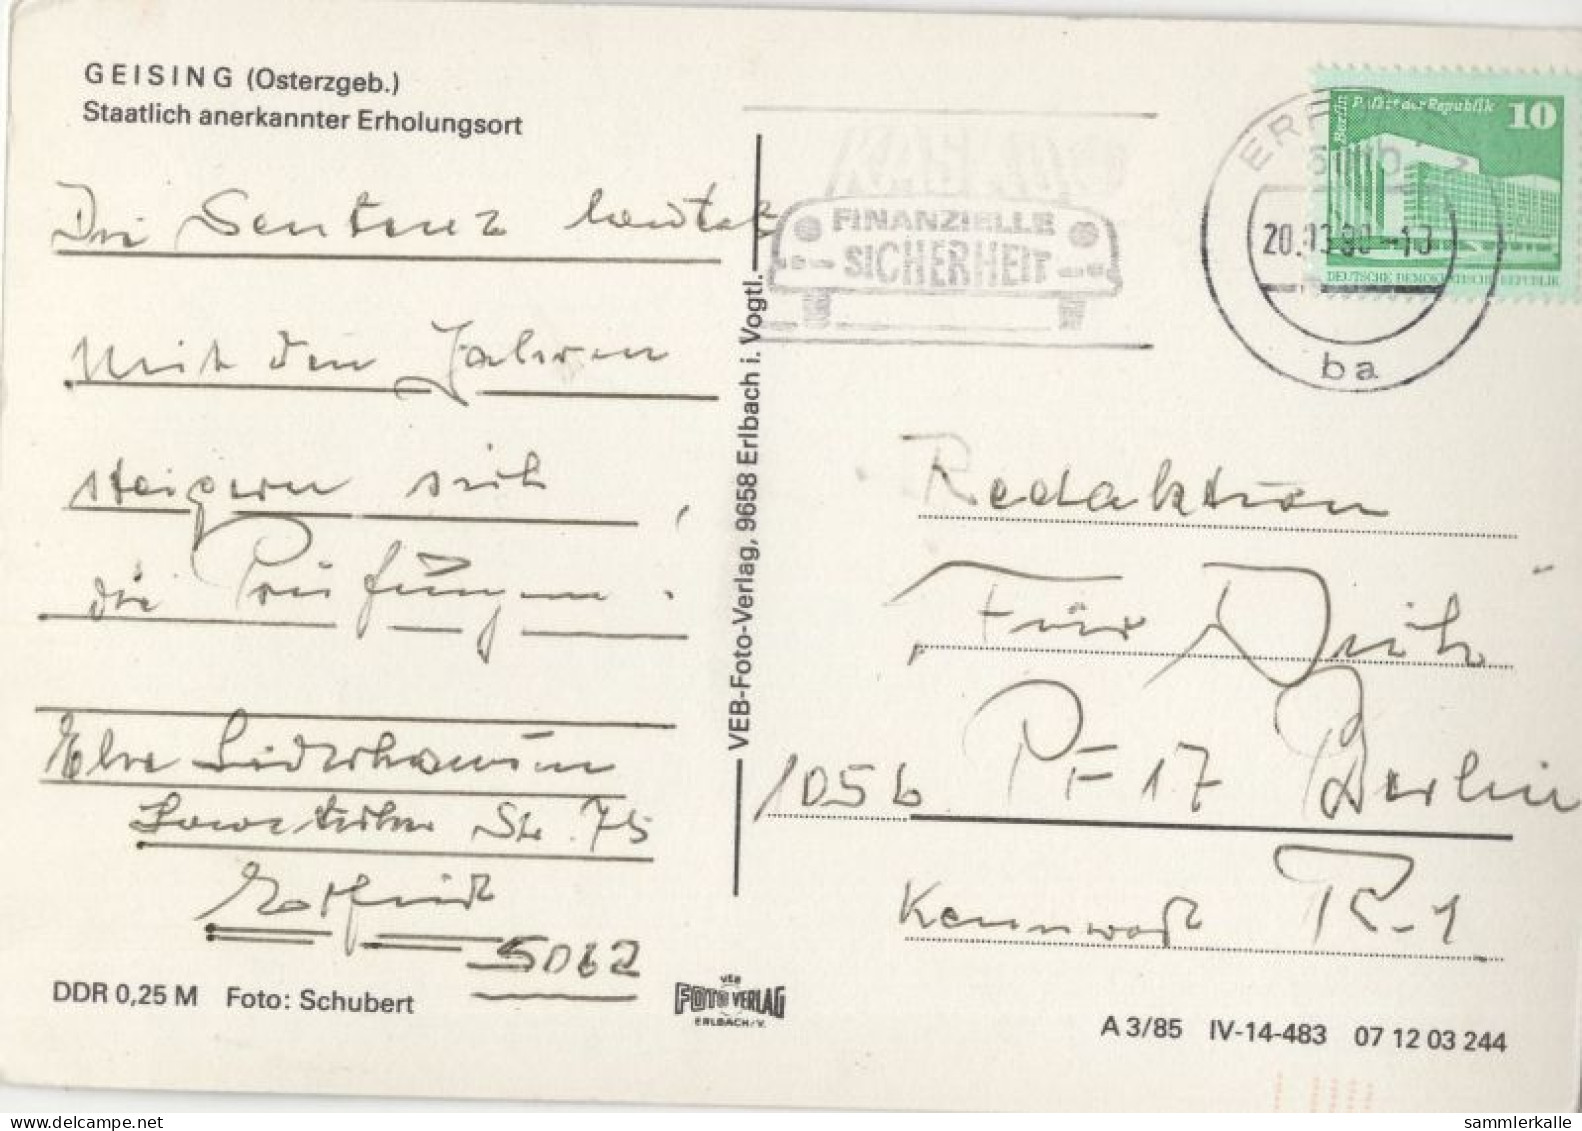 GEISING (Osterzgeb.)
Staatlich anerkannter Erholungsort
Die Sentenz lautet
Mit den Jahren
steigern sich
die Prüfungen.
Str. 75
5062
DDR 0,25 M Foto: Schubert
VEB-Foto-Verlag, 9658 Erlbach i. Vogtl.
VEB
FOTO VERLAG
ERLBACH/V.
FINANZIELLE
SICHERHEIT
ba
Berlin Palast der Republik 10
DEUTSCHE DEMOKRATISCHE REPUBLIK
Redaktion
Für Dich
PF 17 Berlin
Kennwort R-1
A 3/85 IV-14-483 07 12 03 244
sammlerkalle